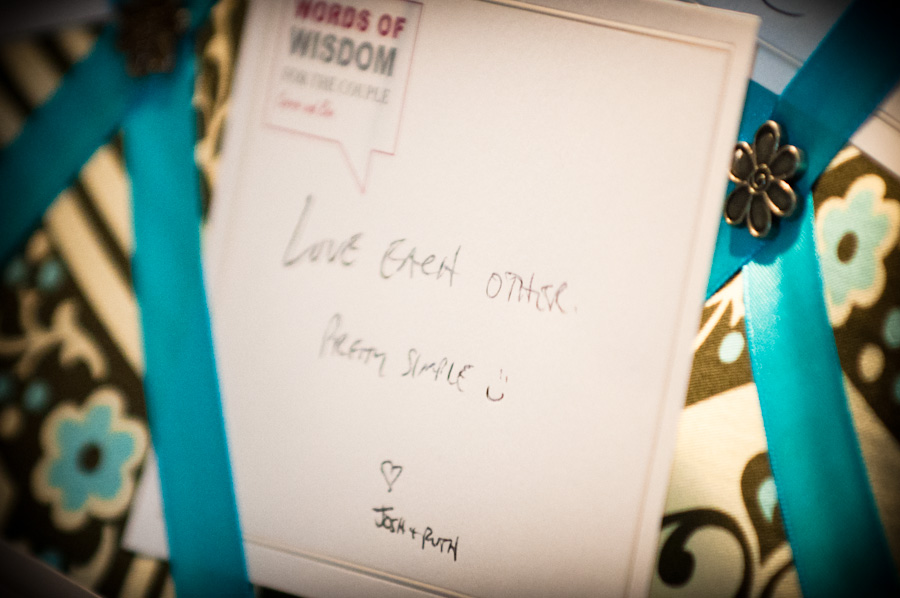 WORDS OF
WISDOM
FOR THE COUPLE
LOVE EACH OTHER.
PRETTY SIMPLE :)
♡
JOSH + RUTH